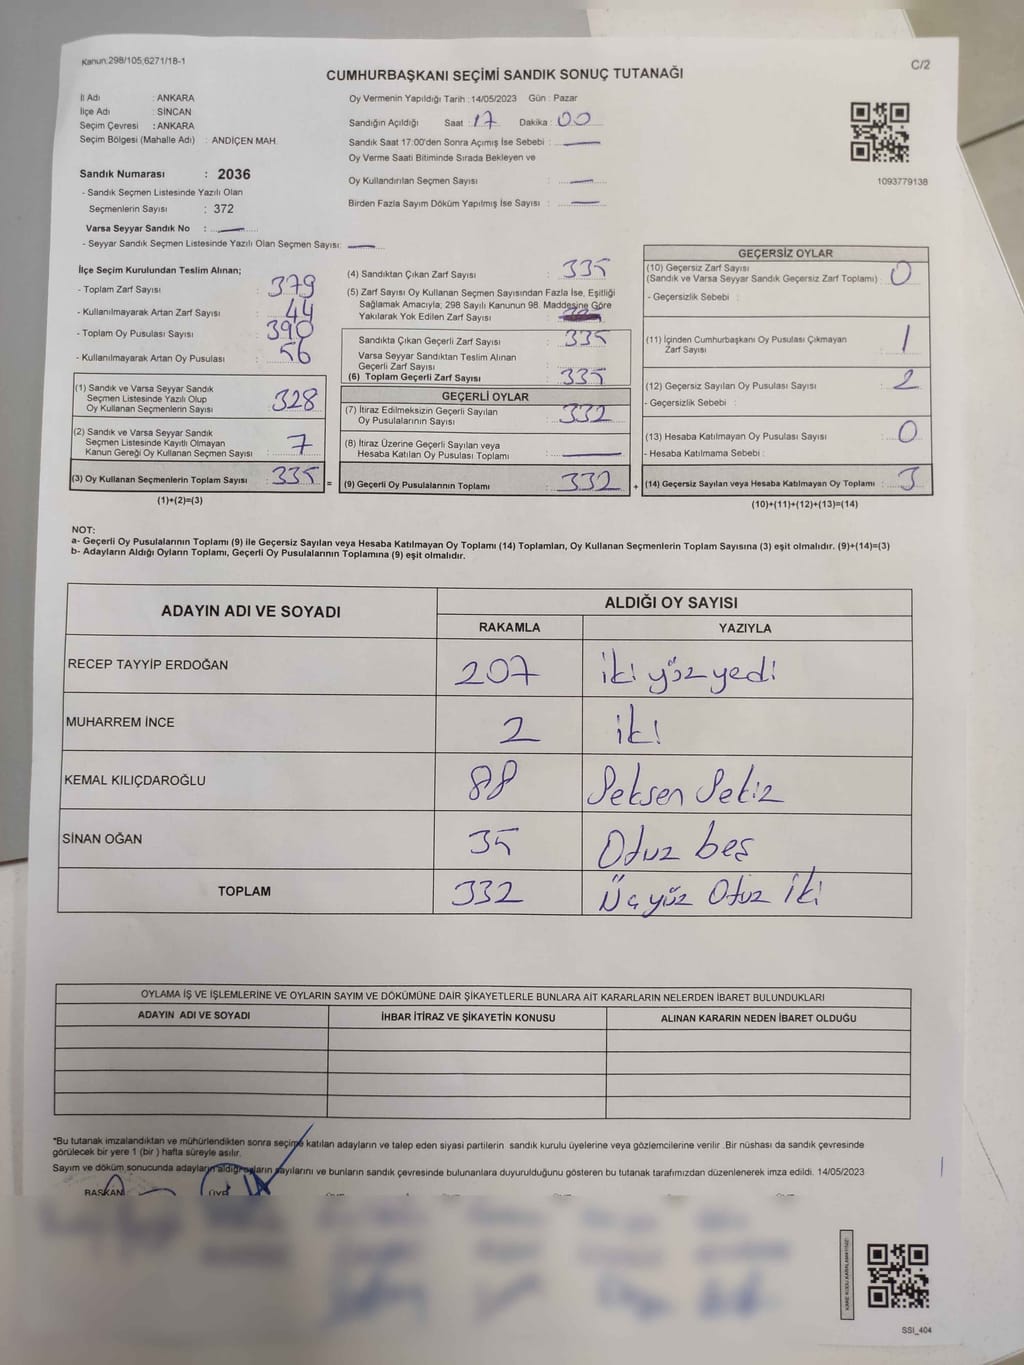 Kanun:298/105,6271/18-1
C/2
CUMHURBAŞKANI SEÇİMİ SANDIK SONUÇ TUTANAĞI
İl Adı : ANKARA
İlçe Adı : SİNCAN
Seçim Çevresi : ANKARA
Seçim Bölgesi (Mahalle Adı) : ANDİÇEN MAH.
Sandık Numarası : 2036
- Sandık Seçmen Listesinde Yazılı Olan
Seçmenlerin Sayısı : 372
Varsa Seyyar Sandık No :
- Seyyar Sandık Seçmen Listesinde Yazılı Olan Seçmen Sayısı:
Oy Vermenin Yapıldığı Tarih :14/05/2023 Gün : Pazar
Sandığın Açıldığı Saat : 17 Dakika : 00
Sandık Saat 17:00'den Sonra Açımış İse Sebebi :
Oy Verme Saati Bitiminde Sırada Bekleyen ve
Oy Kullandırılan Seçmen Sayısı :
Birden Fazla Sayım Döküm Yapılmış İse Sayısı :
1093779138
İlçe Seçim Kurulundan Teslim Alınan;
- Toplam Zarf Sayısı : 379
- Kullanılmayarak Artan Zarf Sayısı : 44
- Toplam Oy Pusulası Sayısı : 390
- Kullanılmayarak Artan Oy Pusulası : 56
(1) Sandık ve Varsa Seyyar Sandık
Seçmen Listesinde Yazılı Olup
Oy Kullanan Seçmenlerin Sayısı : 328
(2) Sandık ve Varsa Seyyar Sandık
Seçmen Listesinde Kayıtlı Olmayan
Kanun Gereği Oy Kullanan Seçmen Sayısı : 7
(3) Oy Kullanan Seçmenlerin Toplam Sayısı : 335 =
(1)+(2)=(3)
(4) Sandıktan Çıkan Zarf Sayısı : 335
(5) Zarf Sayısı Oy Kullanan Seçmen Sayısından Fazla İse, Eşitliği
Sağlamak Amacıyla, 298 Sayılı Kanunun 98. Maddesine Göre
Yakılarak Yok Edilen Zarf Sayısı :
Sandıkta Çıkan Geçerli Zarf Sayısı : 335
Varsa Seyyar Sandıktan Teslim Alınan
Geçerli Zarf Sayısı :
(6) Toplam Geçerli Zarf Sayısı : 335
GEÇERLİ OYLAR
(7) İtiraz Edilmeksizin Geçerli Sayılan
Oy Pusulalarının Sayısı : 332
(8) İtiraz Üzerine Geçerli Sayılan veya
Hesaba Katılan Oy Pusulası Toplamı :
(9) Geçerli Oy Pusulalarının Toplamı : 332 +
GEÇERSİZ OYLAR
(10) Geçersiz Zarf Sayısı
(Sandık ve Varsa Seyyar Sandık Geçersiz Zarf Toplamı) : 0
- Geçersizlik Sebebi :
(11) İçinden Cumhurbaşkanı Oy Pusulası Çıkmayan
Zarf Sayısı : 1
(12) Geçersiz Sayılan Oy Pusulası Sayısı : 2
- Geçersizlik Sebebi :
(13) Hesaba Katılmayan Oy Pusulası Sayısı : 0
- Hesaba Katılmama Sebebi :
(14) Geçersiz Sayılan veya Hesaba Katılmayan Oy Toplamı : 3
(10)+(11)+(12)+(13)=(14)
NOT:
a- Geçerli Oy Pusulalarının Toplamı (9) ile Geçersiz Sayılan veya Hesaba Katılmayan Oy Toplamı (14) Toplamları, Oy Kullanan Seçmenlerin Toplam Sayısına (3) eşit olmalıdır. (9)+(14)=(3)
b- Adayların Aldığı Oyların Toplamı, Geçerli Oy Pusulalarının Toplamına (9) eşit olmalıdır.
ADAYIN ADI VE SOYADI
ALDIĞI OY SAYISI
RAKAMLA YAZIYLA
RECEP TAYYİP ERDOĞAN 207 iki yüz yedi
MUHARREM İNCE 2 iki
KEMAL KILIÇDAROĞLU 88 Seksen Sekiz
SİNAN OĞAN 35 Otuz beş
TOPLAM 332 Üç yüz Otuz iki
OYLAMA İŞ VE İŞLEMLERİNE VE OYLARIN SAYIM VE DÖKÜMÜNE DAİR ŞİKAYETLERLE BUNLARA AİT KARARLARIN NELERDEN İBARET BULUNDUKLARI
ADAYIN ADI VE SOYADI İHBAR İTİRAZ VE ŞİKAYETİN KONUSU ALINAN KARARIN NEDEN İBARET OLDUĞU
*Bu tutanak imzalandıktan ve mühürlendikten sonra seçime katılan adayların ve talep eden siyasi partilerin sandık kurulu üyelerine veya gözlemcilerine verilir .Bir nüshası da sandık çevresinde
görülecek bir yere 1 (bir ) hafta süreyle asılır.
Sayım ve döküm sonucunda adayların aldığı oyların sayılarını ve bunların sandık çevresinde bulunanlara duyurulduğunu gösteren bu tutanak tarafımızdan düzenlenerek imza edildi. 14/05/2023
BAŞKAN ÜYE
SSI_404